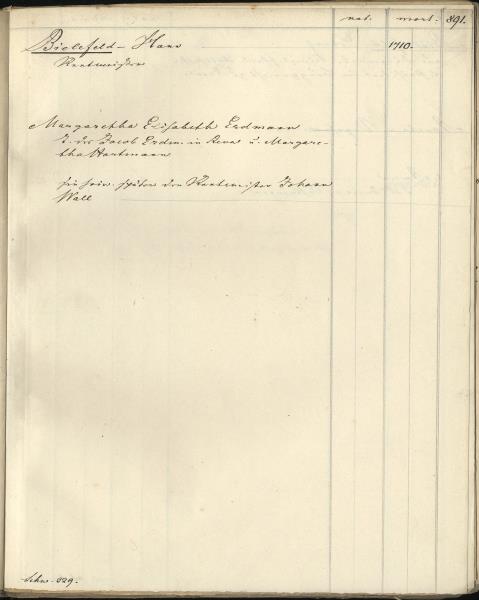 nat. mort. 891.
Bielefeld - Hans 1710.
Rentmeister
Margaretha Elisabeth Erdmann
T. des Jacob Erdm. in Rena u. Margare-
tha Hartmann
sie heir. später den Rentmeister Johann
Wall
Schw. 029.